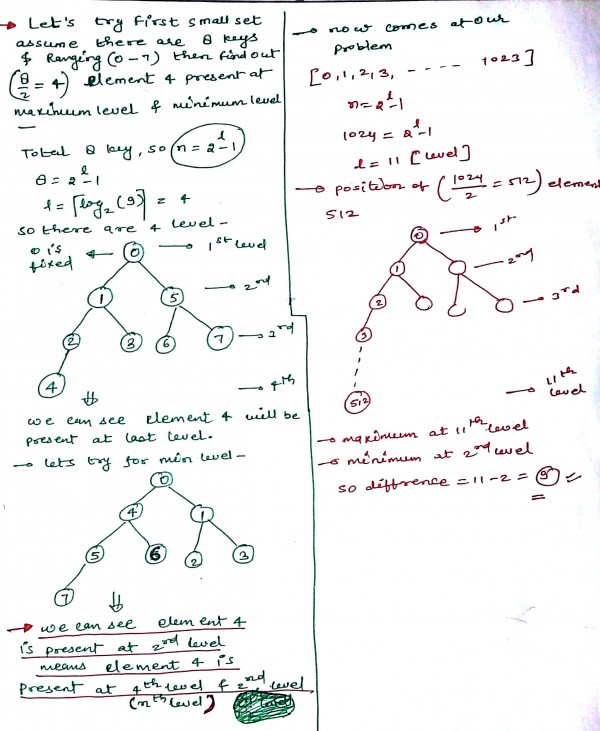 → Let's try first small set
assume there are 8 keys
& Ranging (0-7) then find out
(8/2 = 4) element 4 present at
maximum level & minimum level
Total 8 key, so n = 2^l - 1
8 = 2^l - 1
l = ⌈log₂(9)⌉ = 4
so there are 4 level -
0 is fixed ← 0 → 1st level
1 5 → 2nd
2 8 6 7 → 3rd
4 → 4th
⇓
we can see element 4 will be
present at last level.
→ lets try for min level -
0
4 1
5 6 2 3
7
⇓
→ we can see element 4
is present at 2nd level
means element 4 is
present at 4th level & 2nd level
(nth level)
→ now comes at our
problem
[0,1,2,3, - - - - 1023]
n = 2^l - 1
1024 = 2^l - 1
l = 11 [level]
→ position of (1024/2 = 512) element
512
0 → 1st
1 → 2nd
2 → 3rd
3
512 → 11th level
→ maximum at 11th level
→ minimum at 2nd level
so diffrence = 11 - 2 = 9